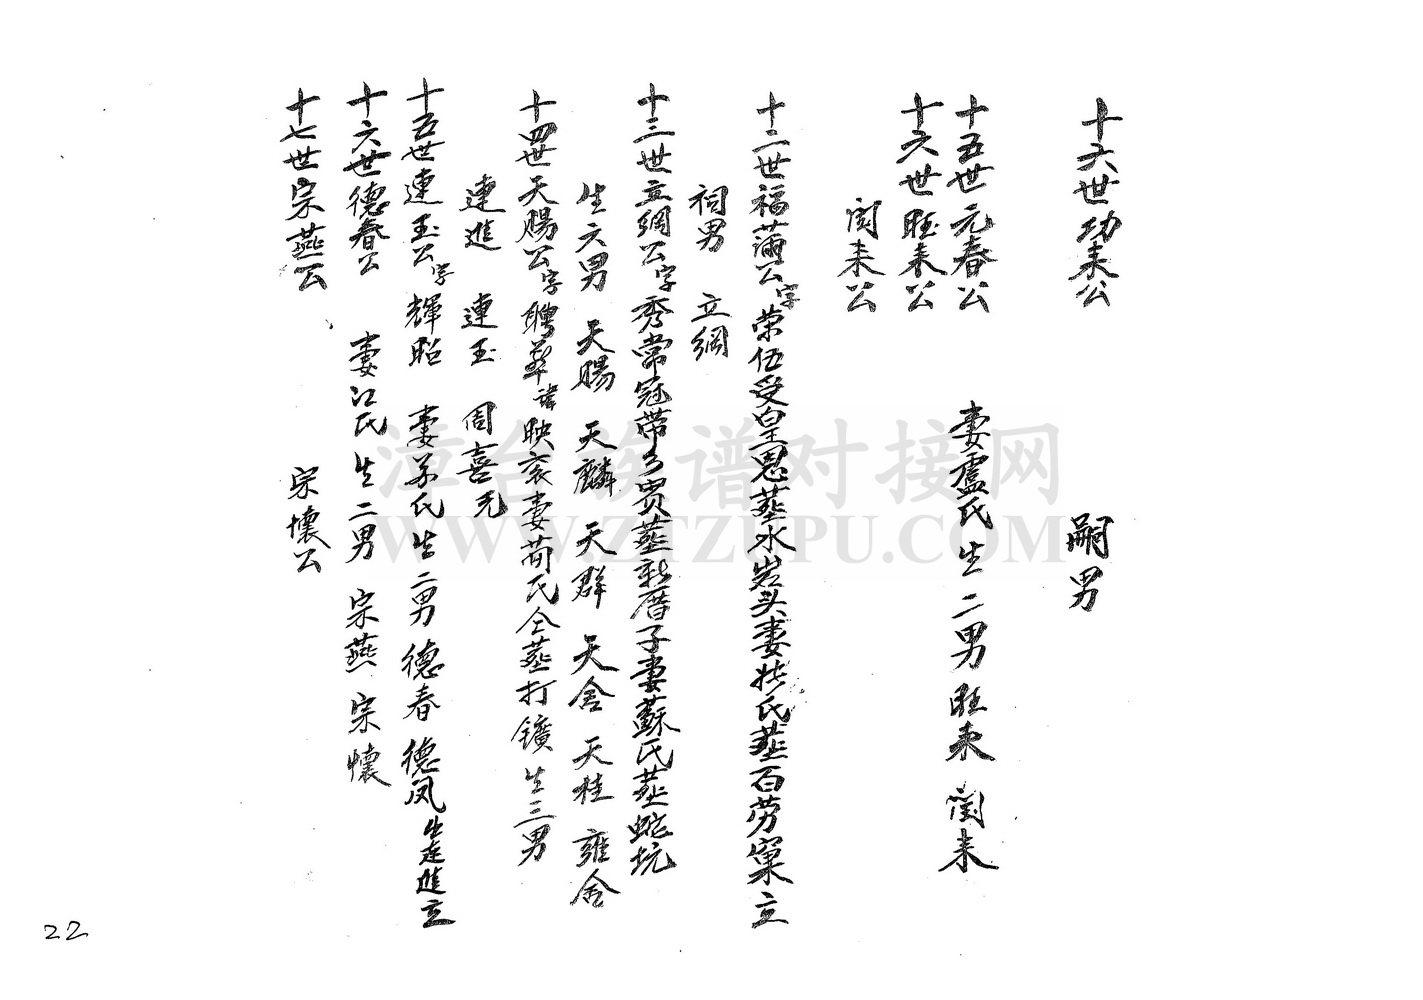 十六世功来公 嗣男
十五世元春公 妻盧氏生二男旺来 闰来
十六世旺来公
闰来公
十二世福蒲公字荣伍受皇恩葬水岩头妻 氏葬百劳窠立
祠男 立綱
十三世立綱公字秀常冠带 賓葬新厝子妻蘇氏葬蛇坑
生六男 天賜 天麟 天群 天舍 天桂 雍舍
十四世天賜公字聘莘諱映袞妻 氏仝葬打鑛生三男
連進 連玉 周喜
十五世連玉公字輝昭 妻 氏 生二男德春德凤 連進立
十六世德春公 妻江氏生二男宗燕宗懷
十七世宗燕公 宗懷公
22
漳台族谱对接网
WWW.ZTZUPU.COM